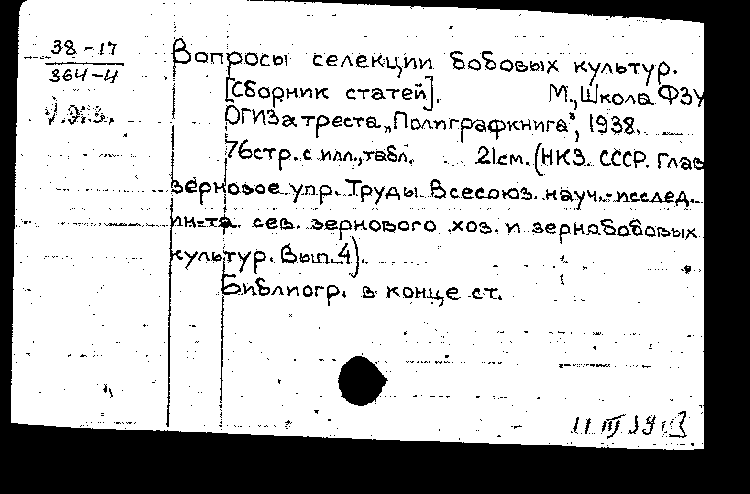 38-17
364-4
Вопросы селекции бобовых культур.
[Сборник статей]. М., Школа ФЗУ
ОГИЗа треста „Полиграфкнига", 1938.
76 стр. с илл., табл. 21 см. (НКЗ СССР. Глав
зерновое упр. Труды Всесоюз. науч.-исслед.
ин-та сев. зернового хоз. и зернобобовых
культур. Вып. 4).
Библиогр. в конце ст.
11 III